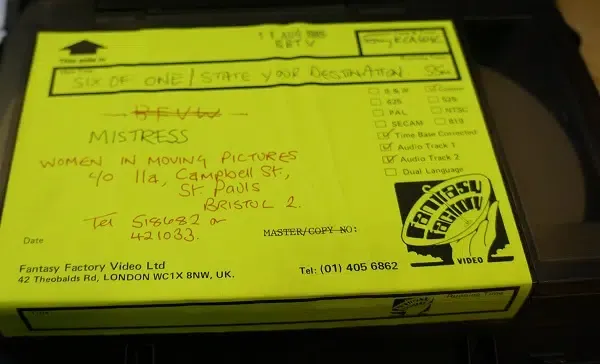 This side in
SIX OF ONE / STATE YOUR DESTINATION
BFVW
MISTRESS
WOMEN IN MOVING PICTURES
c/o 11a, Campbell St,
St. Pauls
BRISTOL 2.
Tel 518682 or
421033.
Date
MASTER/COPY NO:
Fantasy Factory Video Ltd
42 Theobalds Rd, LONDON WC1X 8NW, UK.
Tel: (01) 405 6862
625
525
PAL
NTSC
SECAM
819
Time Base Corrected
Audio Track 1
Audio Track 2
Dual Language
Fantasy
Factory
VIDEO